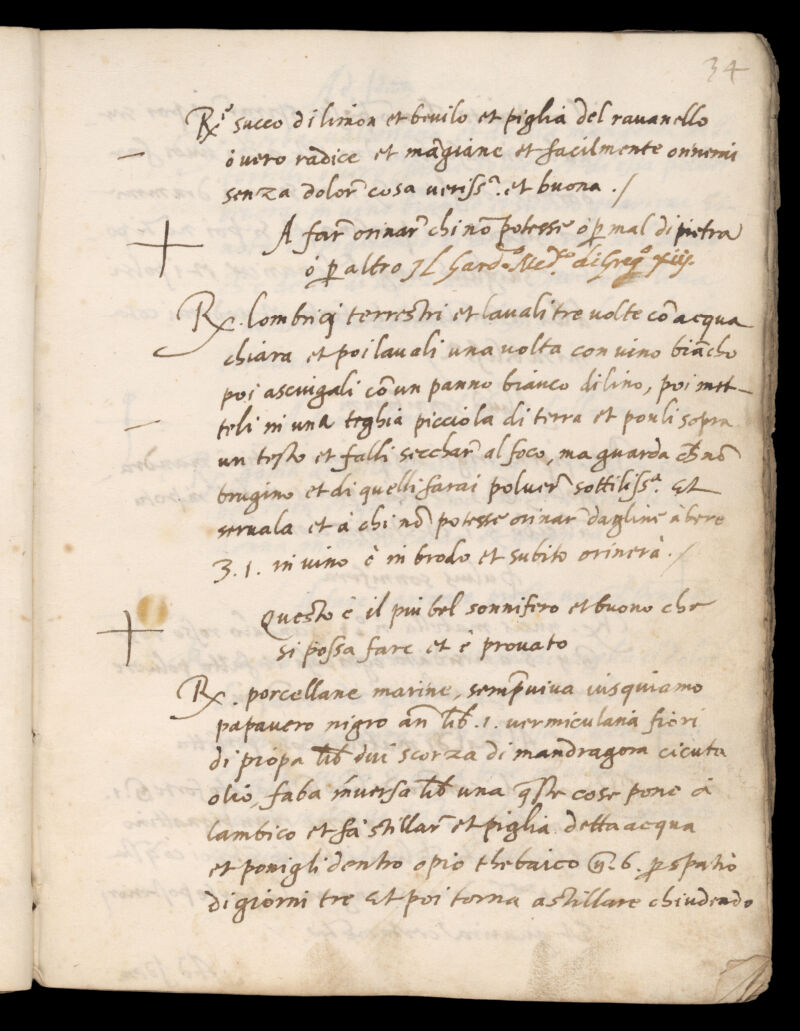 34
℞ᵉ succo di limon et bevilo et piglia del ravanello
overo radice et mãgiane et facilmente
senza dolor̃ cosa veriss.ª et buona ./
A far̃ orinar̃ chi nõ potesse ò ꝑ mal di pietra
ó ꝑ altro
℞. lombrici terrestri et lavali tre volte cõ acqua
chiara et poi lavali una volta con vino biãcho
poi asciugali cõ un panno bianco di lino, poi met–
teli in una teghia picciola di terra et ponli sopra
un testo et falli secchar̃ al foco, ma guarda ch̃ nõ
brugino et di quelli farai polver̃ sottiliss.ª Et
servala et à chi nõ potesse orinar̃ dagline à bere
Ʒ. 1. in vino ò in brodo et subito orinerà ./
Questo è il piu bel sonnifero et buono che
si possa fare et è provato
℞. porcellane marine, semp̃viva iusquiamo
papavero nigro añ lib̃ .1. vermicularia fiori
di piopa lib̃ dui scorza di mandragora cicuta
olio, faba inversa lib̃ una q̃ste cose pone à
lambico et fà stillar̃ et piglia detta acqua
et ponigli dentro opio thebaico 6. ꝑ spatio
di giorni tre Et poi torna a stillare chiudendo